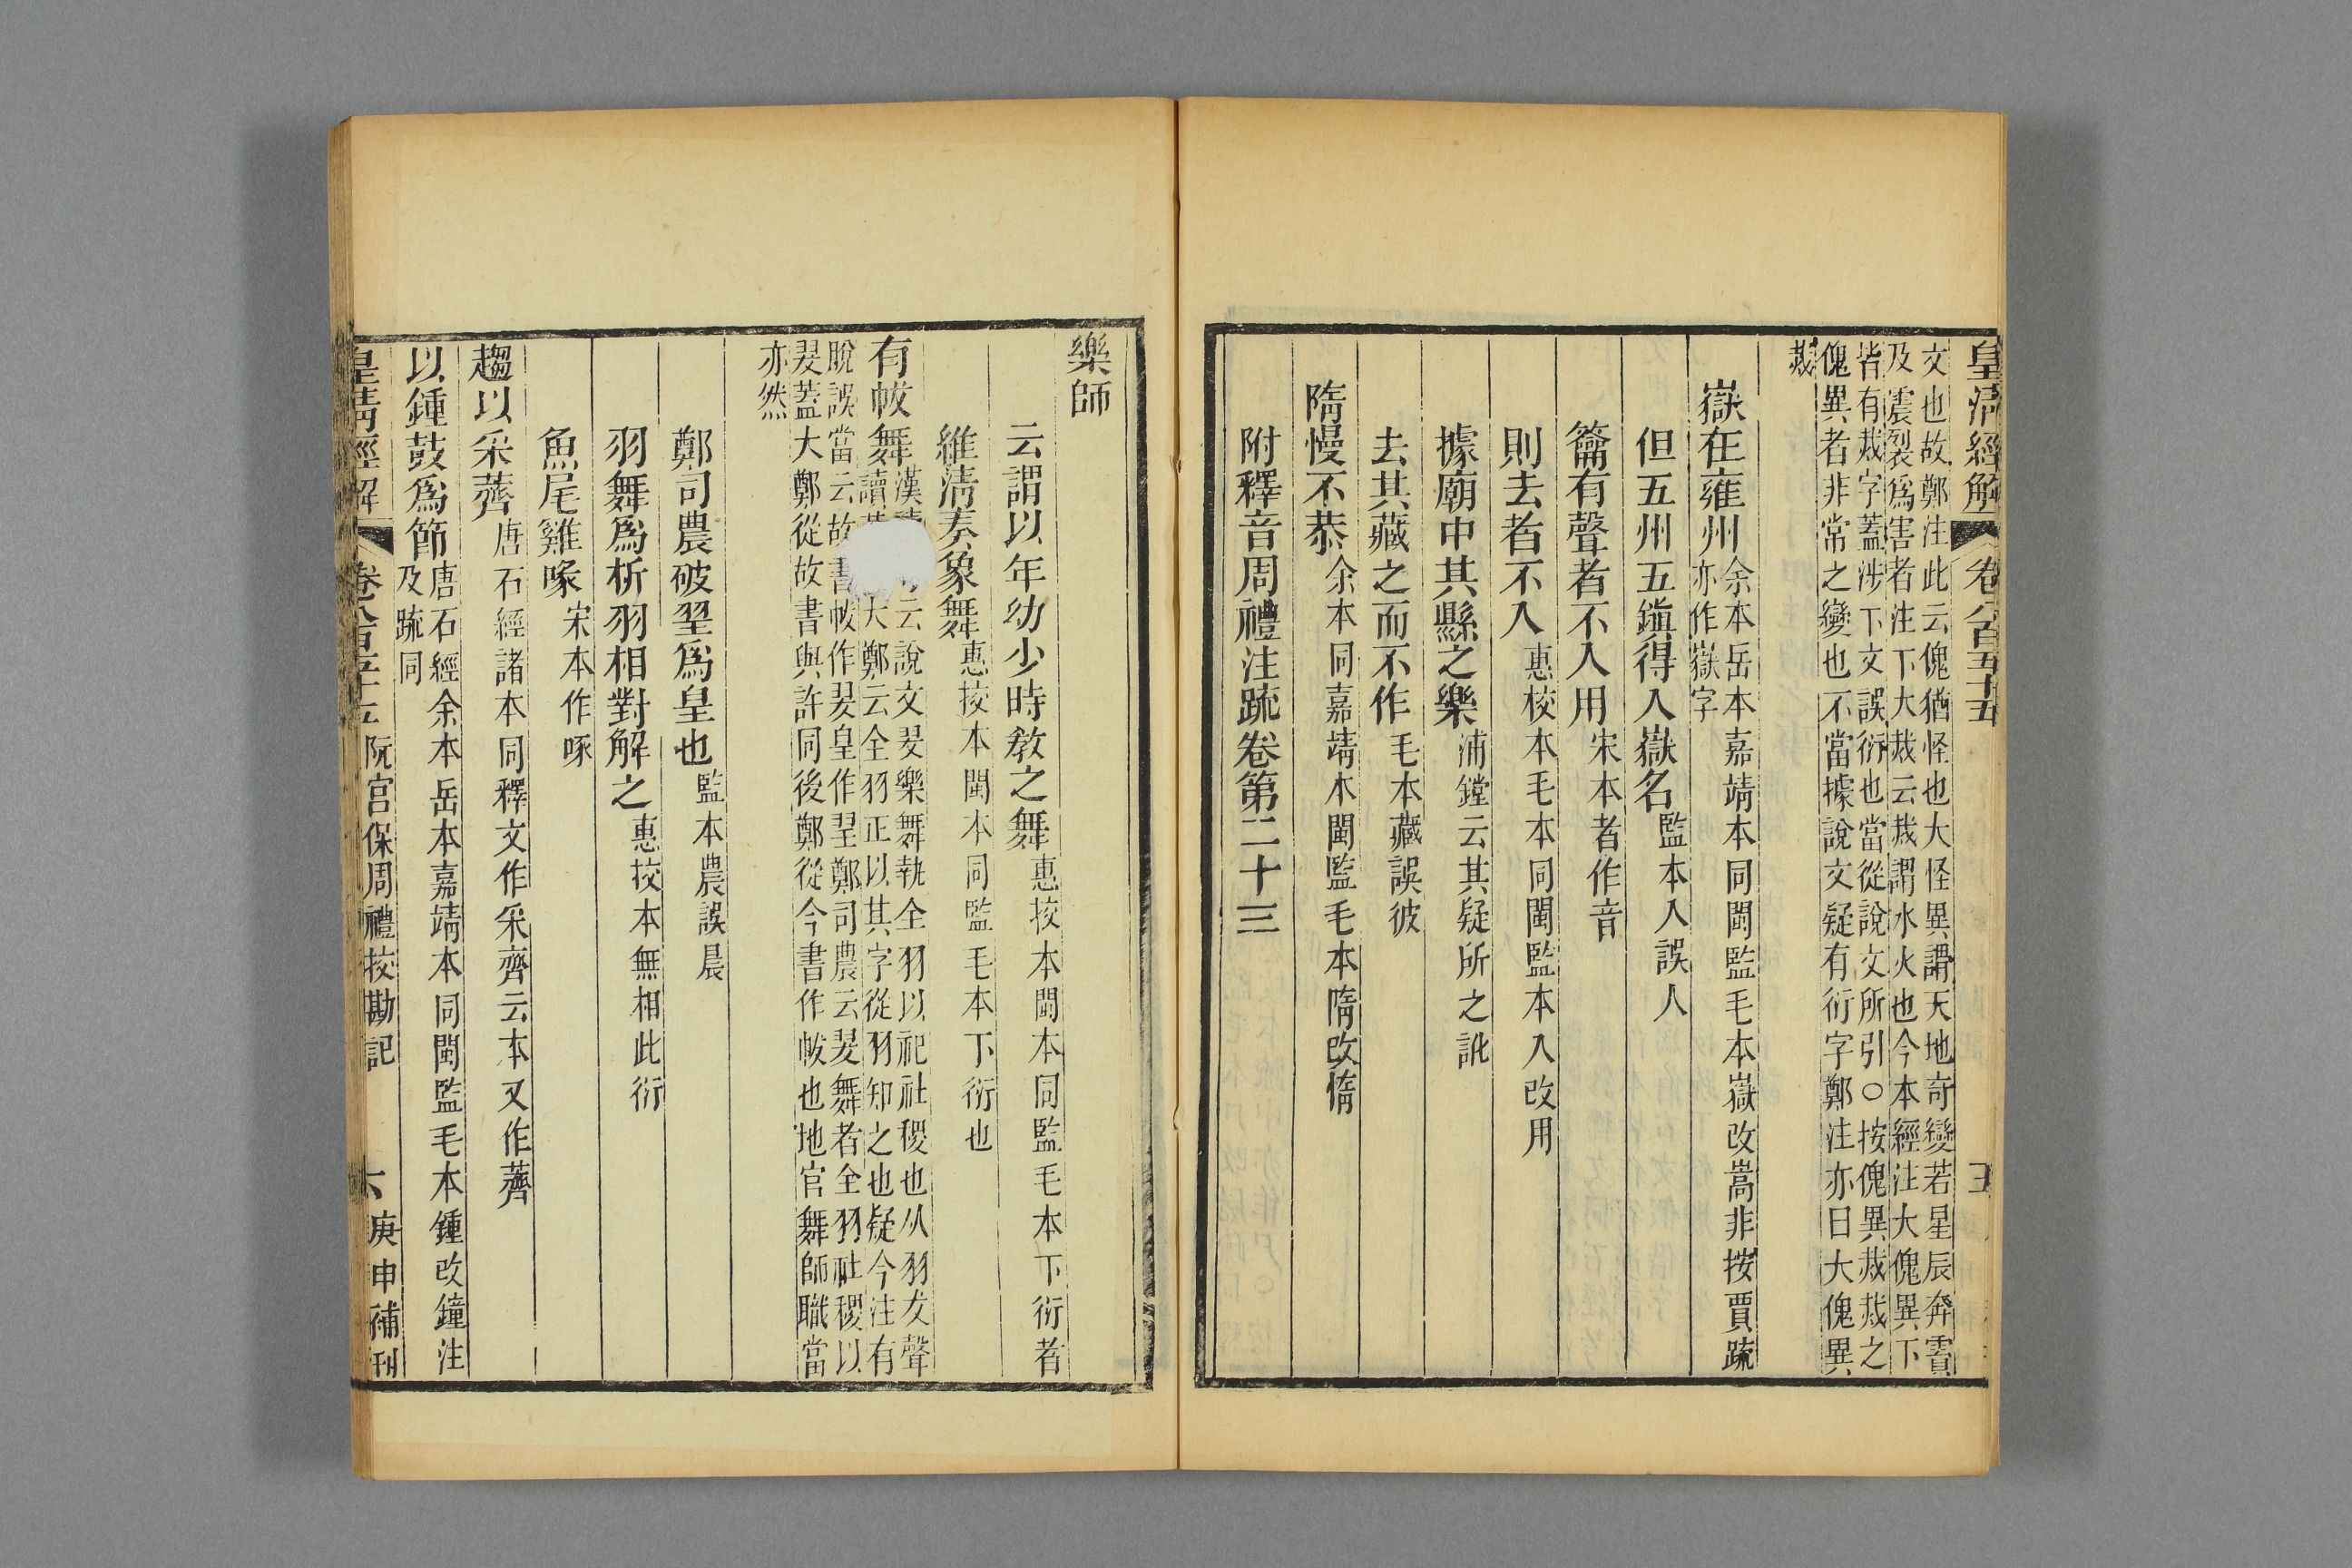 皇清經解 卷八百五十五
文也故鄭注此云傀猶怪也大怪異謂天地奇變若星辰奔霣
及震裂爲害者注下大烖云烖謂水火也今本經注大傀異下
皆有烖字蓋涉下文誤衍也當從說文所引○按傀異烖烖之
傀異者非常之變也不當據說文疑有衍字鄭注亦曰大傀異
烖
嶽在雍州余本岳本嘉靖本同閩監毛本嶽改嵩非按賈疏
亦作嶽字
但五州五鎭得入嶽名監本入誤人
籥有聲者不入用宋本者作音
則去者不入惠校本毛本同閩監本入改用
據廟中其縣之樂浦鏜云其疑所之訛
去其藏之而不作毛本藏誤彼
隋慢不恭余本同嘉靖本閩監毛本隋改惰
附釋音周禮注疏卷第二十三
樂師
云謂以年幼少時教之舞惠挍本閩本同監毛本下衍者
維淸奏象舞惠挍本閩本同監毛本下衍也
有帗舞漢云說文翇樂舞執全羽以祀社稷也从羽犮聲
讀大鄭云全羽正以其字從羽知之也疑今注有
脫誤當云故書帗作翇皇作䍿鄭司農云翇舞者全羽社稷以
翇蓋大鄭從故書與許同後鄭從今書作帗也地官舞師職當
亦然
鄭司農破䍿爲皇也監本農誤晨
羽舞爲析羽相對解之惠挍本無相此衍
魚尾雞喙宋本作啄
趨以采薺唐石經諸本同釋文作采齊云本又作薺
以鍾鼓爲節唐石經余本岳本嘉靖本同閩監毛本鍾改鐘注
及疏同
皇清經解 卷八百五十五 阮宮保周禮挍勘記 六 庚申補刊